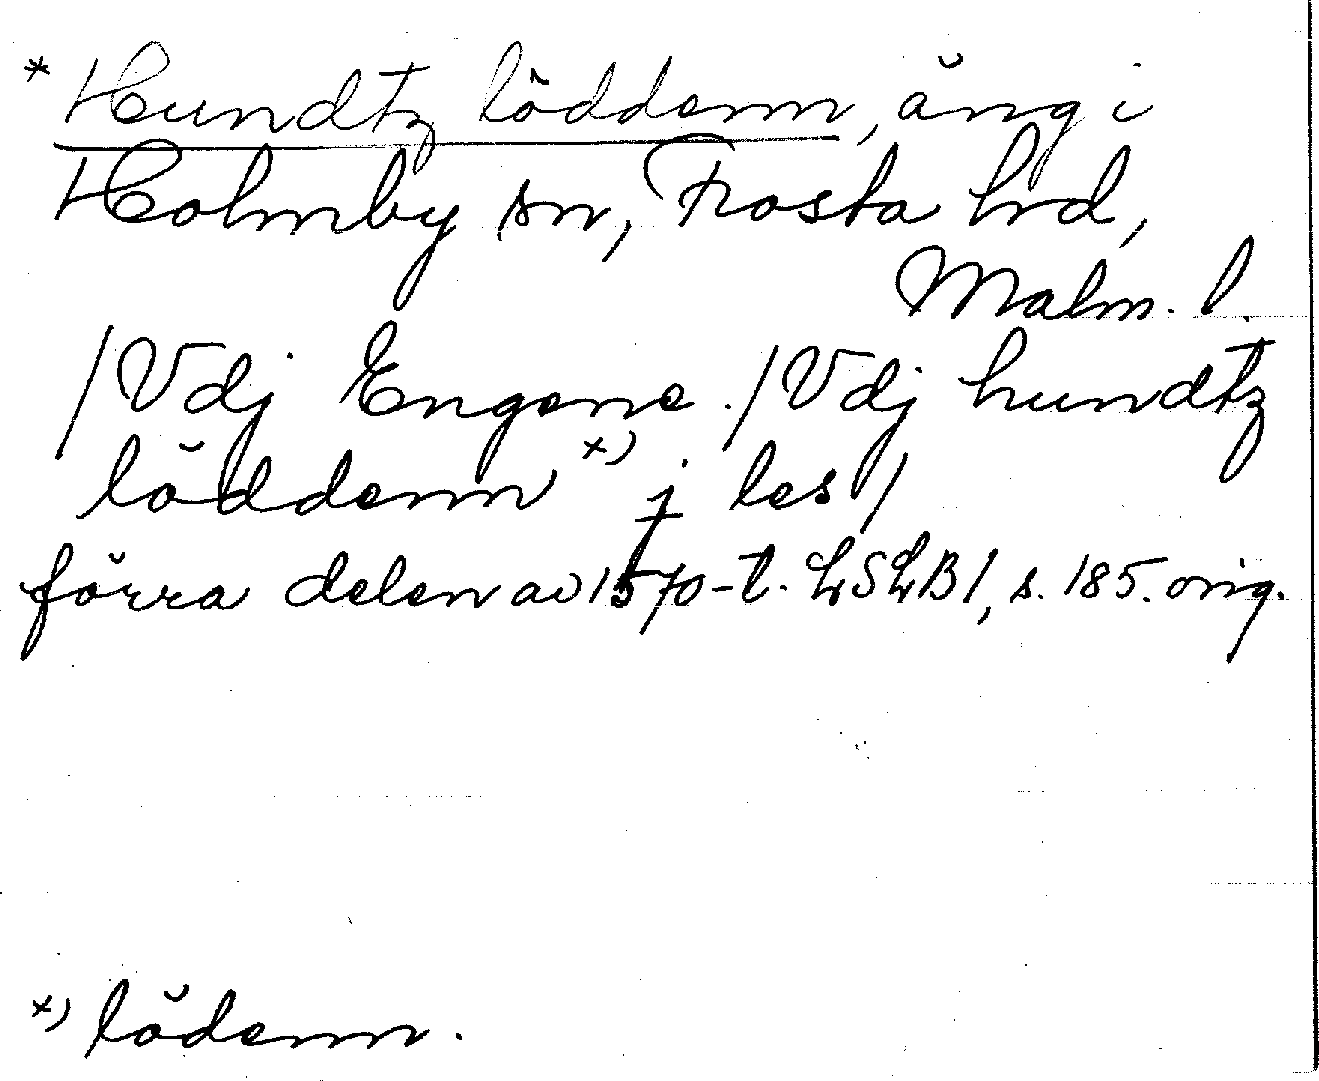 * Hundtz löddenn, äng i
Holmby sn, Frosta hrd,
Malm. l.
/Vdj Engene. /Vdj hundtz
löddenn *) j les/
förra delen av 1570-t. LSLB1, s. 185. orig.
*) lödenn.